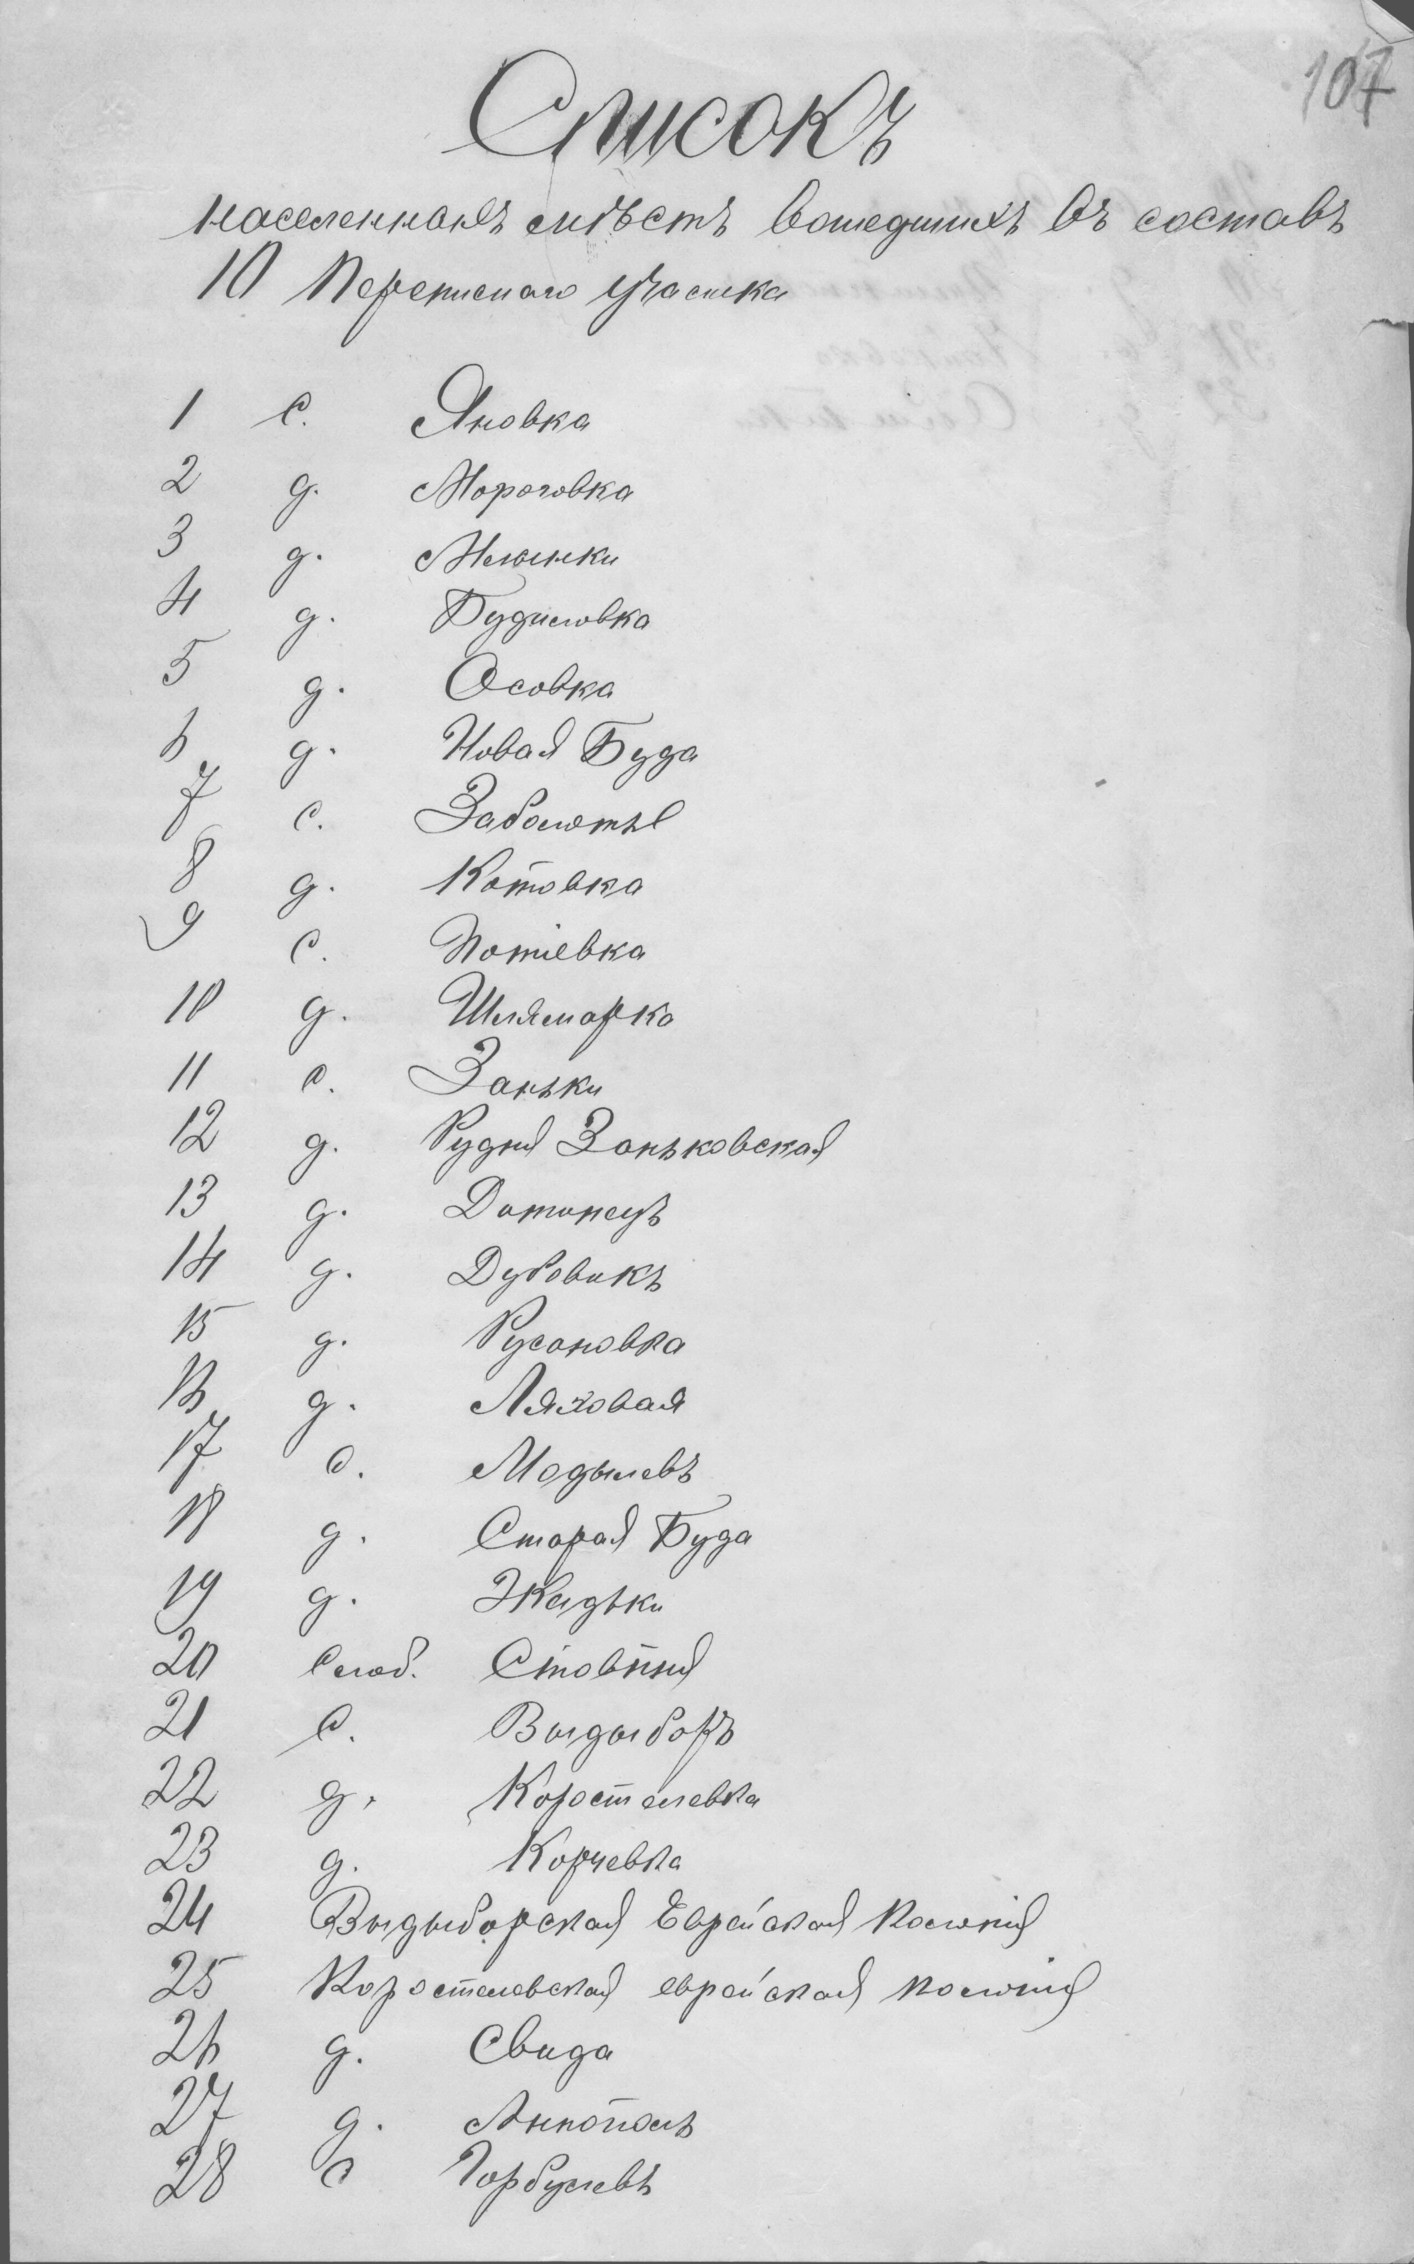 107
Списокъ
населенныхъ мѣстъ вошедшихъ въ составъ
10 Переписного участка
1 с. Яновка
2 д. Мороговка
3 д. Млынки
4 д. Будиловка
5 д. Осовка
6 д. Новая Буда
7 с. Заболотье
8 д. Котовка
9 с. Потіевка
10 д. Шлямарка
11 с. Заньки
12 д. Рудня Заньковская
13 д. Дотинецъ
14 д. Дубовикъ
15 д. Русановка
16 д. Ляховая
17 с. Модылевъ
18 д. Старая Буда
19 д. Жадьки
20 Слоб. Стовпня
21 с. Выдыборъ
22 д. Коростелевка
23 д. Корчевка
24 Выдыборская Еврейская Колонія
25 Коростелевская еврейская колонія
26 д. Свида
27 д. Аннополь
28 с Горбулевъ